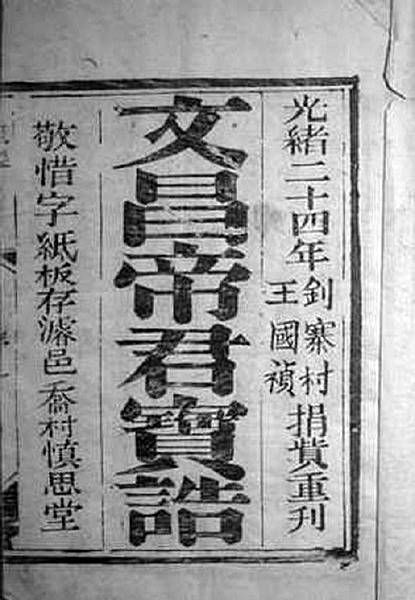 光緒二十四年釗寨村王國禎捐貲重刊
文昌帝君寶誥
敬惜字紙板存濬邑喬村慎思堂